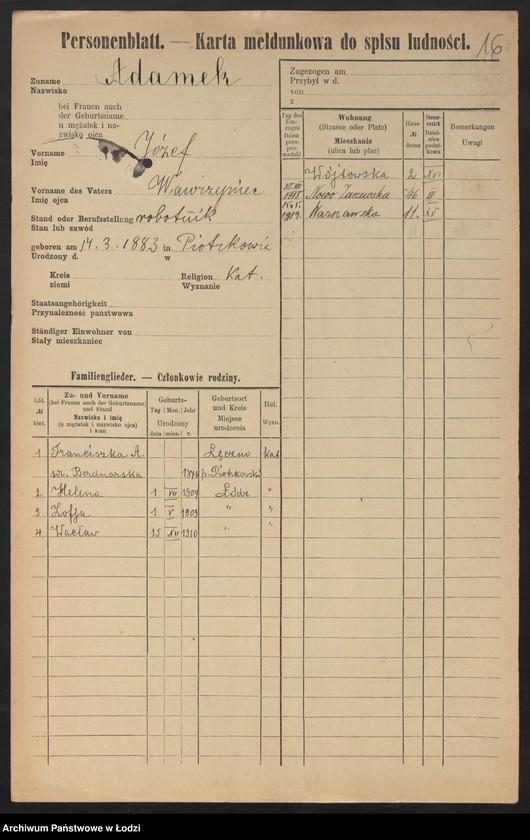 Personenblatt. — Karta meldunkowa do spisu ludności.
16
Zuname Adamek
Nazwisko
bei Frauen auch
der Geburtsname
u mężatek i na-
zwisko ojca
Vorname Józef
Imię
Vorname des Vaters Wawrzyniec
Imię ojca
Stand oder Berufsstellung robotnik
Stan lub zawód
geboren am 14. 3. 1883 in Piotrkowie
Urodzony d. w
Kreis Religion Kat.
ziemi Wyznanie
Staatsangehörigkeit
Przynależność państwowa
Ständiger Einwohner von
Stały mieszkaniec
Zugezogen am
Przybył w d.
von
z
Tag des Um-zuges Dzień prze-prowadzki
Wohnung (Strasse oder Platz) Mieszkanie (ulica lub plac)
Haus № domu
Steuer-bezirk Dziel-nica podat-kowa
Bemerkungen Uwagi
Wójtowska 2 XVI
1918 Nowo Zarzewska 46
1919. Warszawska 11.
Familienglieder. — Członkowie rodziny.
Lfd. № bież.
Zu- und Vorname (bei Frauen auch der Geburtsname) und Stand Nazwisko i imię (u mężatek i nazwisko ojca) i stan
Geburts- Tag Mon. Jahr Urodzony dnia mies. r.
Geburtsort und Kreis Miejsce urodzenia
Rel. Wyzn.
1 Franciszka A. Łęczno Kat
Bednarska p. Piotrkowski
2 Helena 1 VII 1907 Łódz "
3 Zofja 1 V 1909 " "
4 Wacław 15 XII 1910 " "
Archiwum Państwowe w Łodzi